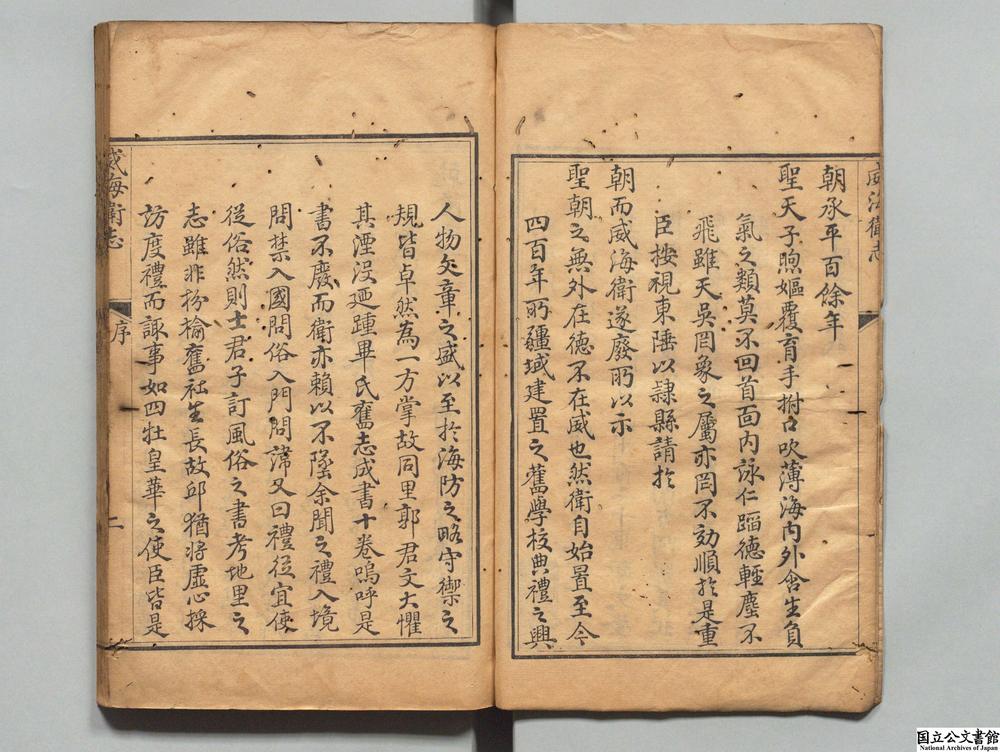 威海衛志
朝承平百餘年
聖天子煦嫗覆育手拊口吹薄海內外含生負
氣之類莫不回首面內詠仁蹈德輕塵不
飛雖天吳罔象之屬亦罔不効順於是重
臣按視東陲以隷縣請於
朝而威海衛遂廢所以示
聖朝之無外在德不在威也然衛自始置至今
四百年所疆域建置之舊學校典禮之興
人物文章之盛以至於海防之略守禦之
規皆卓然為一方掌故同里郭君文大懼
其湮沒廼踵畢氏舊志成書十卷嗚呼是
書不廢而衛亦賴以不墜余聞之禮入境
問禁入國問俗入門問諱又曰禮從宜使
從俗然則士君子訂風俗之書考地里之
志雖非枌榆舊社生長故邱猶將虛心採
訪度禮而諏事如四牡皇華之使臣皆是
威海衛志
序
二
国立公文書館
National Archives of Japan